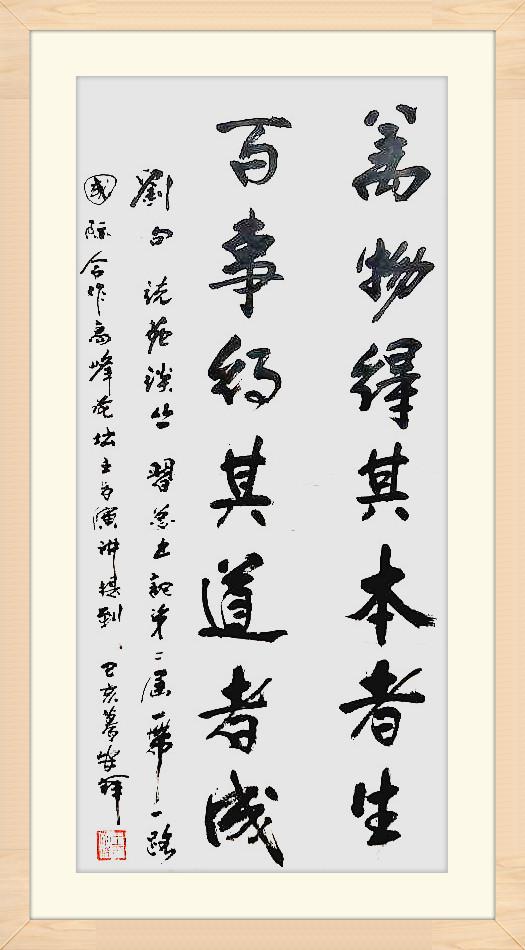 萬物得其本者生
百事得其道者成
劉向說苑談丛 習总书記第二届一带一路
國际合作高峰论坛主旨演讲提到 己亥暮